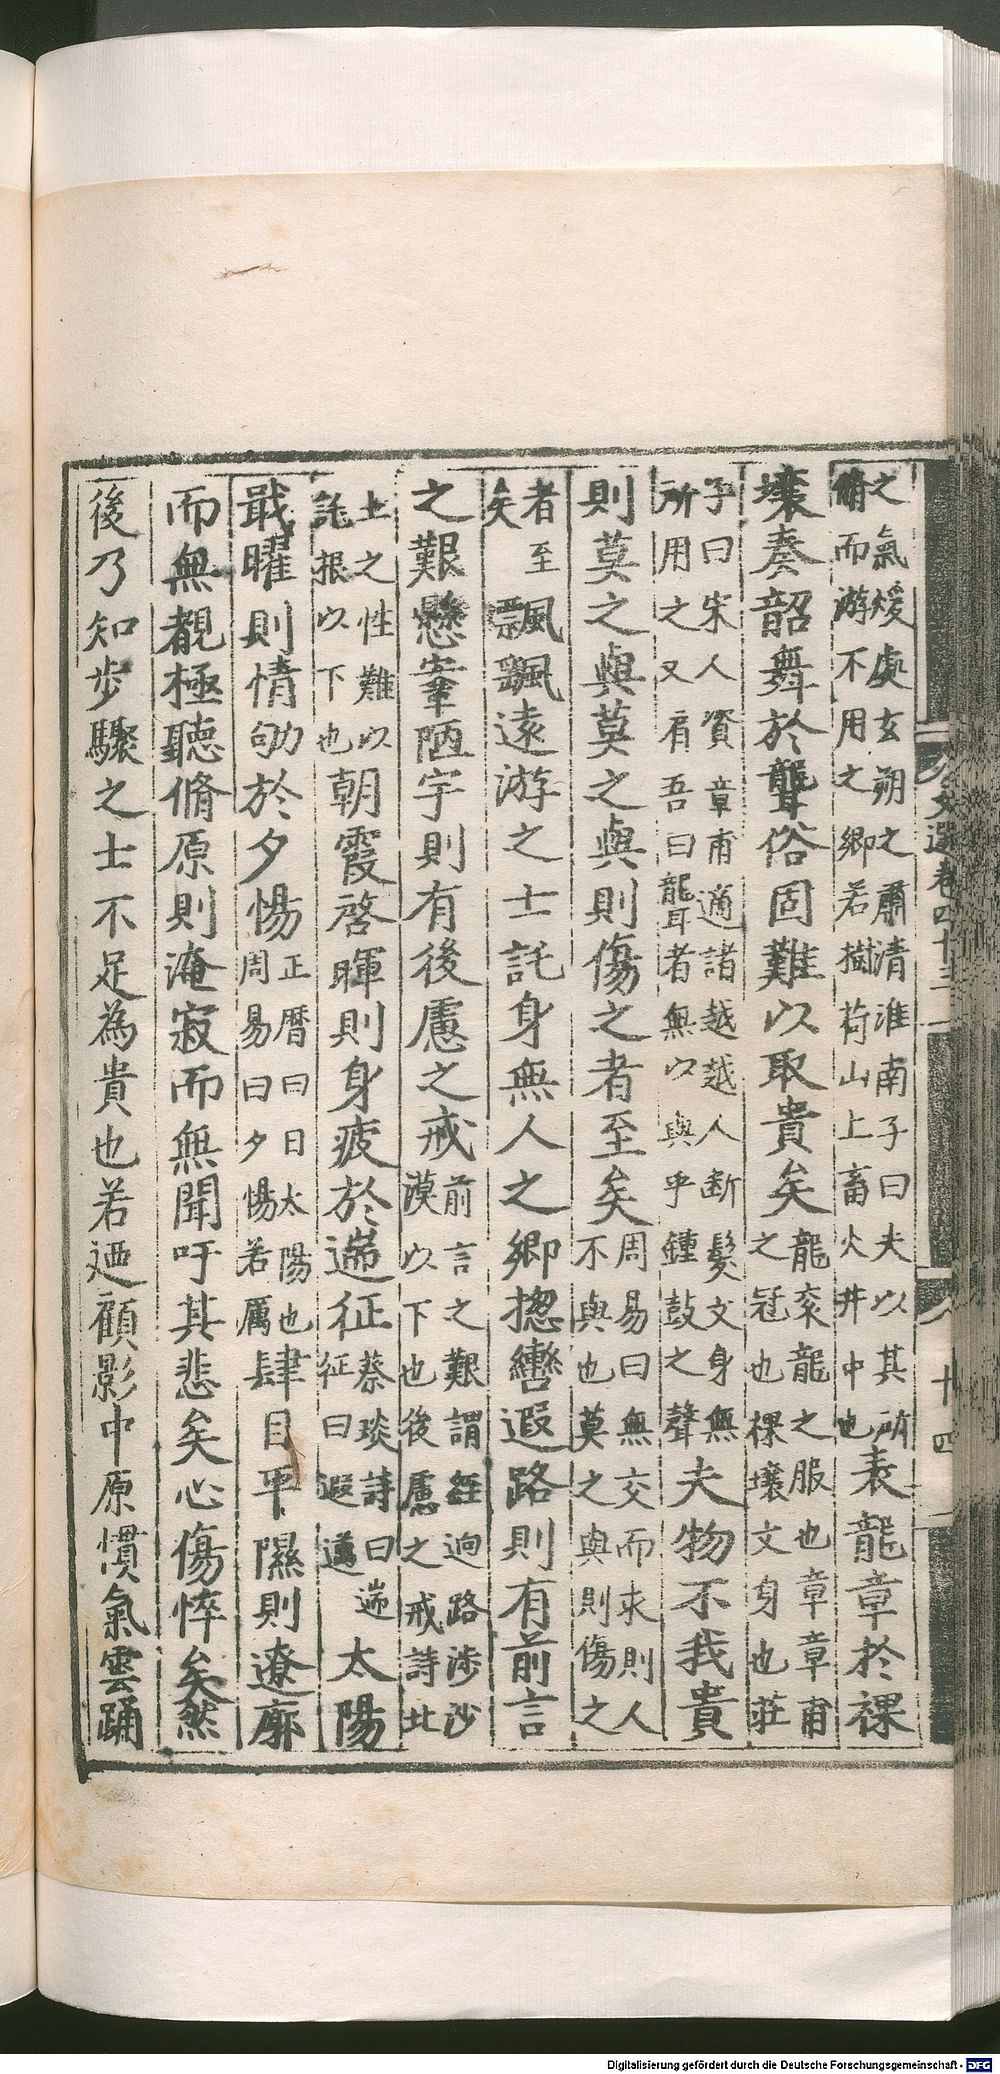 文選卷四十三
十四
之氣煖處玄朔之肅清淮南子曰夫以其所脩而游不用之鄉若樹荷山上畜火井中也表龍章於裸
壤奏韶舞於聾俗固難以取貴矣龍衮龍之服也章章甫之冠也裸壤文身也莊
子曰宋人資章甫適諸越越人断髮文身無所用之又肩吾曰聾者無以與乎鍾鼓之聲夫物不我貴
則莫之與莫之與則傷之者至矣周易曰無交而求則人不與也莫之與則傷之
者至矣飄颻遠游之士託身無人之鄉揔轡遐路則有前言
之艱懸鞌陋宇則有後慮之戒前言之艱謂経迥路涉沙漠以下也後慮之戒詩北
土之性難以託根以下也朝霞啓暉則身疲於遄征蔡琰詩曰遄征日遐邁太陽
戢曜則情劬於夕惕正曆曰日太陽也周易曰夕惕若厲肆目平隰則遼廓
而無覩極聽脩原則淹寂而無聞吁其悲矣心傷悴矣然
後乃知步驟之士不足為貴也若迺顧影中原憤氣雲踊
Digitalisierung gefördert durch die Deutsche Forschungsgemeinschaft - DFG